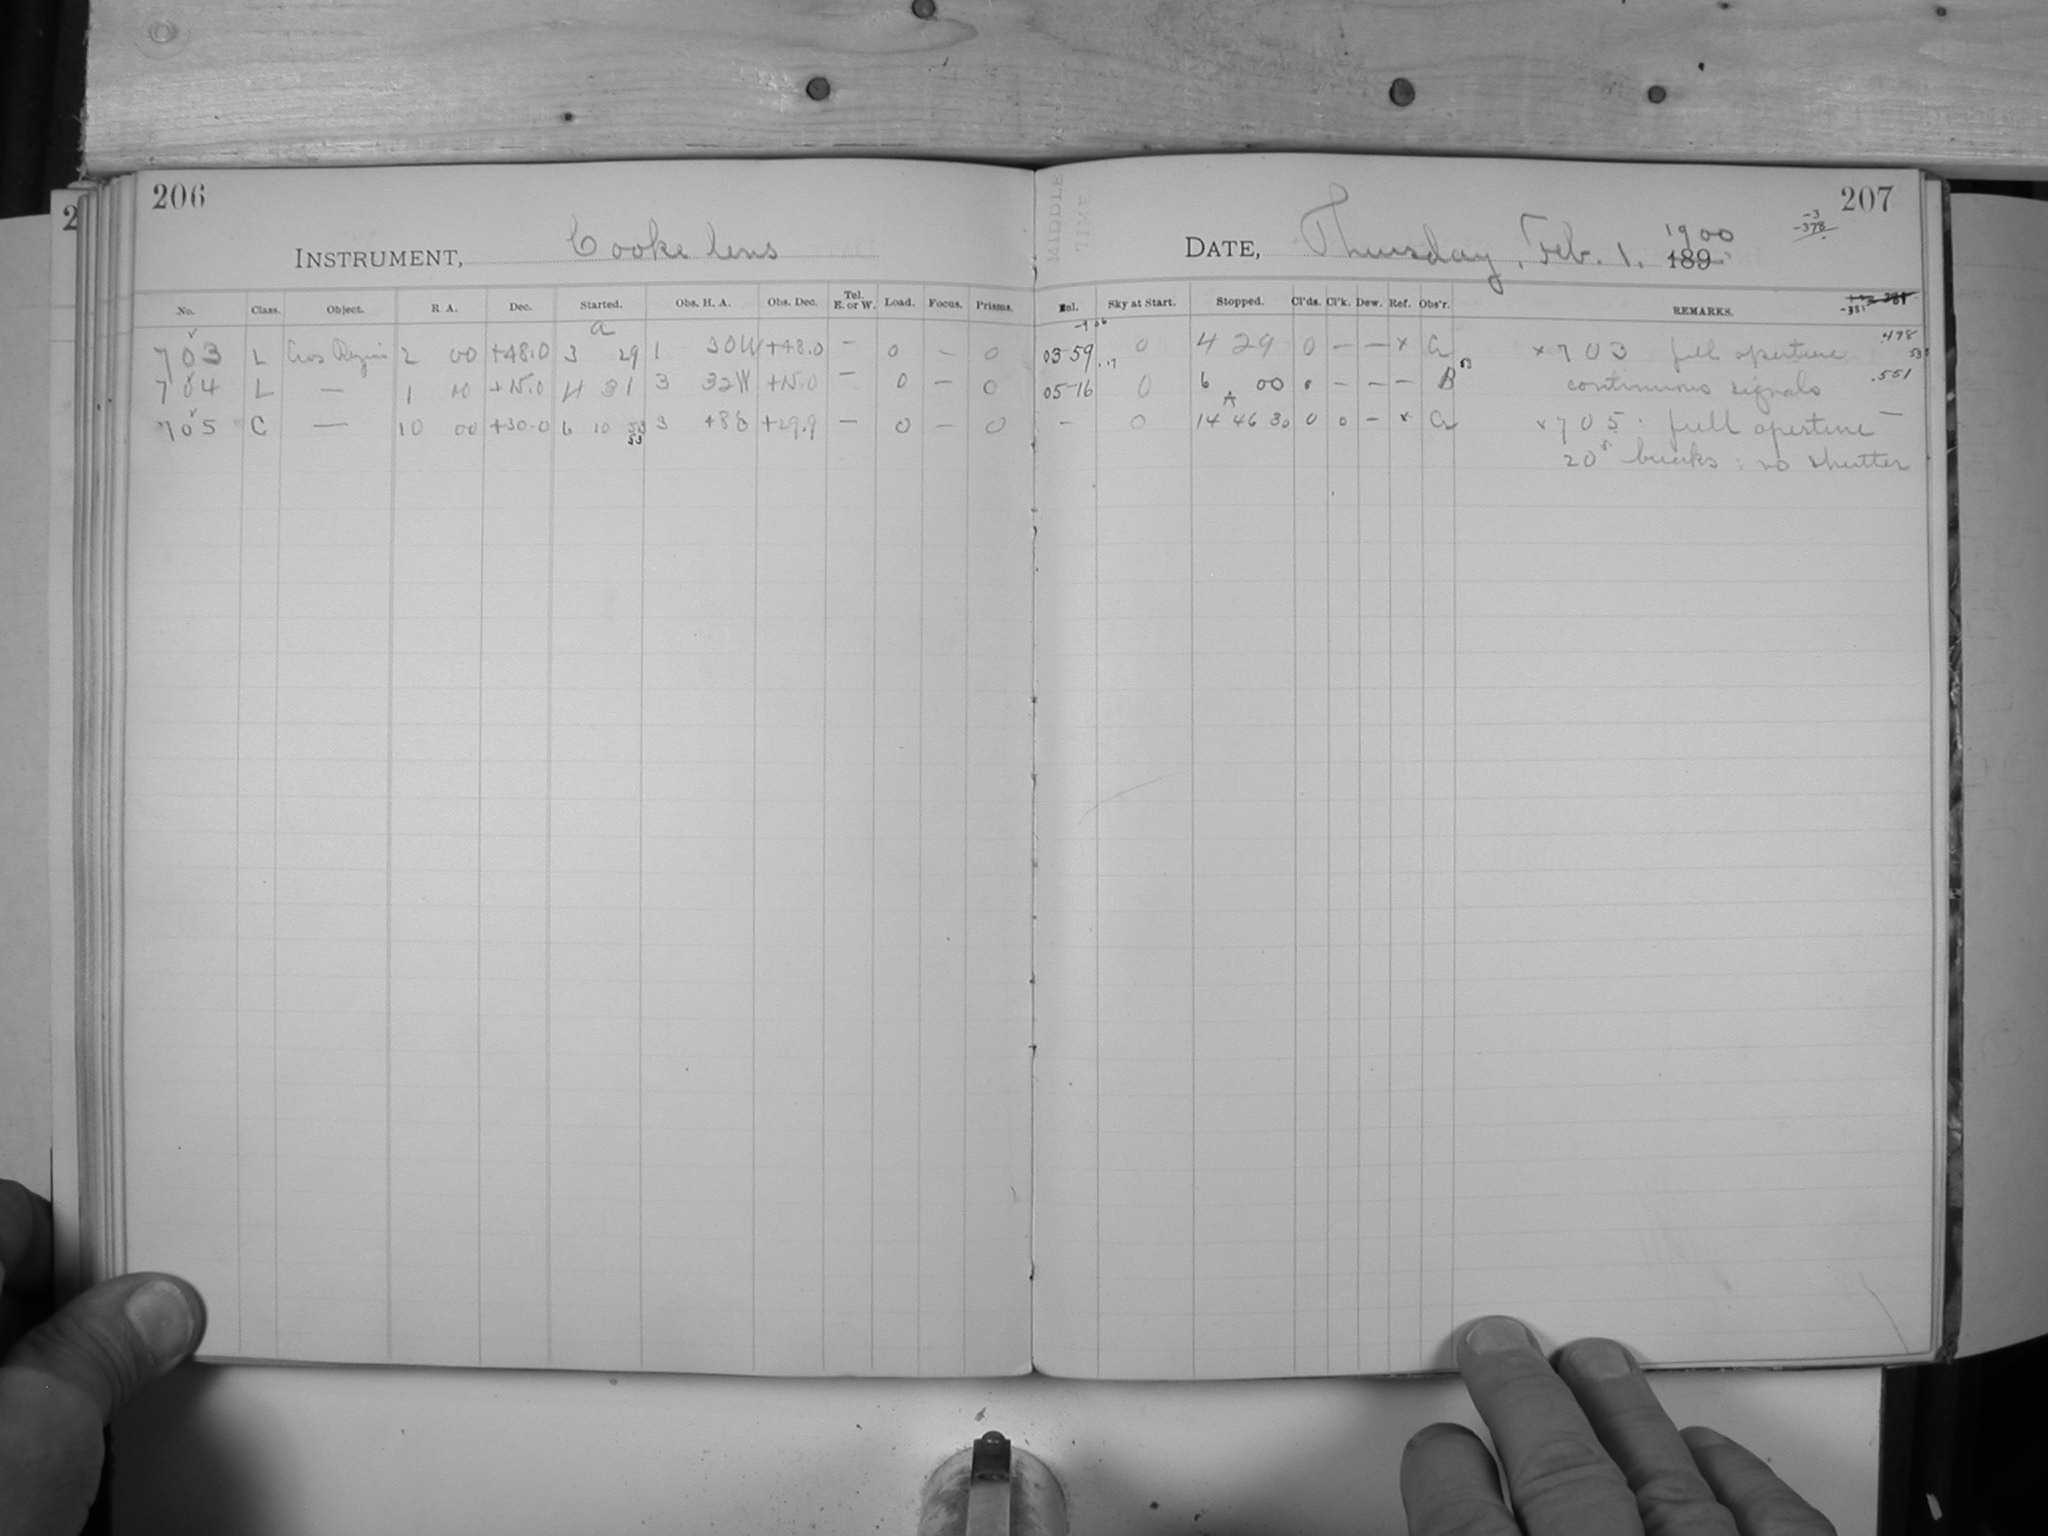 206
INSTRUMENT, Cooke lens
No. Class. Object. R A. Dec. Started. Obs. H. A. Obs. Dec. Tel. E. or W. Load. Focus. Prisms.
a
703 L 2 00 +48.0 3 29 1 30W +48.0 — 0 — 0
704 L — 1 10 +15.0 4 31 3 32W +15.0 — 0 — 0
705 C — 10 00 +30.0 6 10 3 +29.9 — 0 — 0
2
MIDDLE TIME
207
DATE, Thursday, Feb. 1. 1900
189
-3
-378
Sky at Start. Stopped. Cl'ds. Cl'k. Dew. Ref. Obs'r. REMARKS.
-381
03 59 0 4 29 0 — — x x 703 full aperture .498
05-16 0 6 00 — — — B continuous signals .551
A
— 0 14 46 30 0 0 — x x 705. full aperture —
20s breaks : no shutter